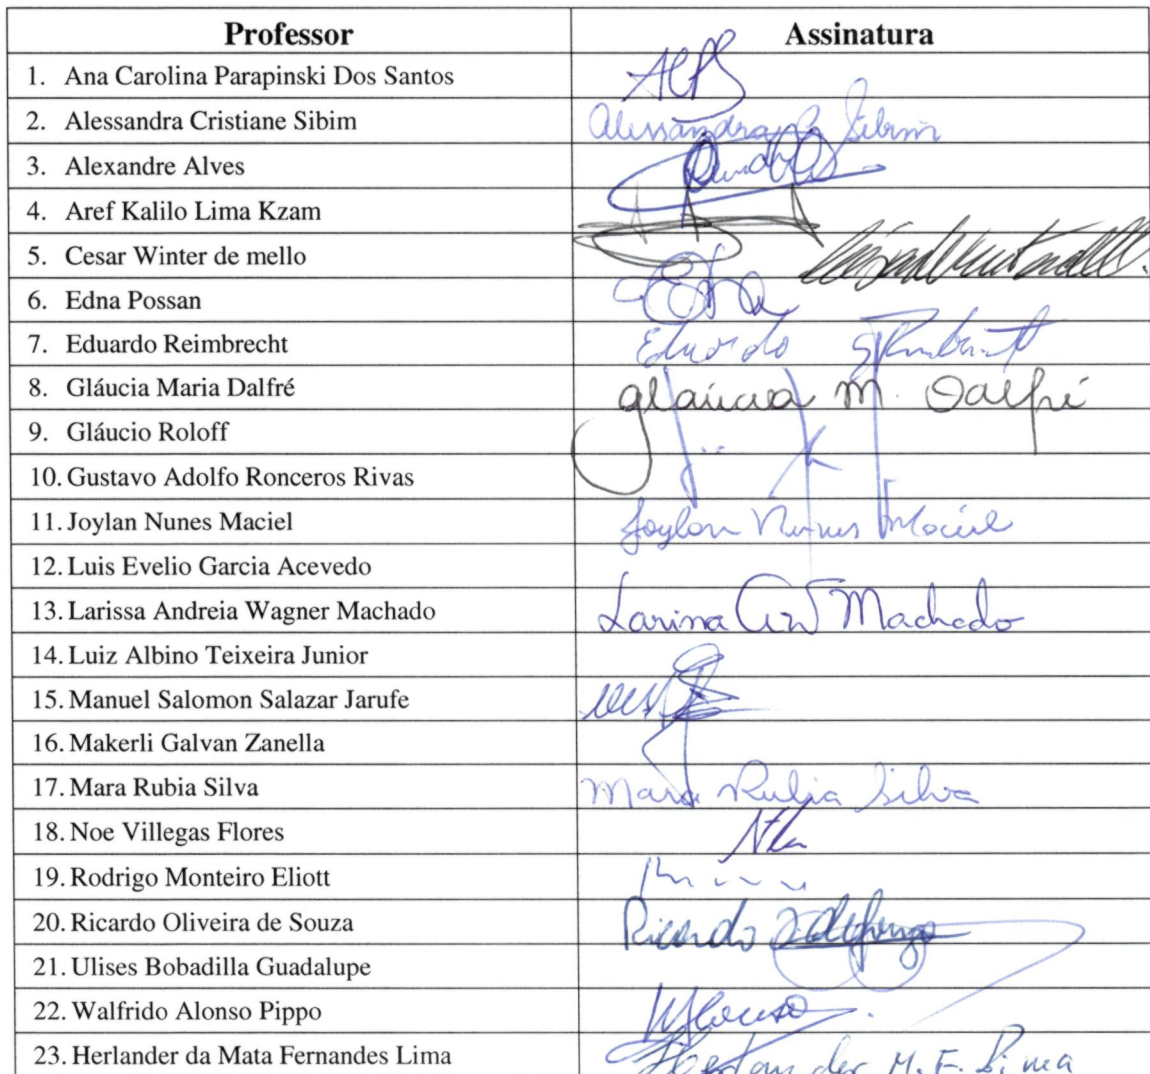 Professor Assinatura
1. Ana Carolina Parapinski Dos Santos
2. Alessandra Cristiane Sibim Alessandra Sibim
3. Alexandre Alves
4. Aref Kalilo Lima Kzam
5. Cesar Winter de mello
6. Edna Possan
7. Eduardo Reimbrecht Eduardo
8. Gláucia Maria Dalfré Gláucia M. Dalfré
9. Gláucio Roloff
10. Gustavo Adolfo Ronceros Rivas
11. Joylan Nunes Maciel Joylan Nunes Maciel
12. Luis Evelio Garcia Acevedo
13. Larissa Andreia Wagner Machado Larissa AW Machado
14. Luiz Albino Teixeira Junior
15. Manuel Salomon Salazar Jarufe
16. Makerli Galvan Zanella
17. Mara Rubia Silva Mara Rubia Silva
18. Noe Villegas Flores
19. Rodrigo Monteiro Eliott
20. Ricardo Oliveira de Souza Ricardo
21. Ulises Bobadilla Guadalupe
22. Walfrido Alonso Pippo
23. Herlander da Mata Fernandes Lima Herlander M. F. Lima